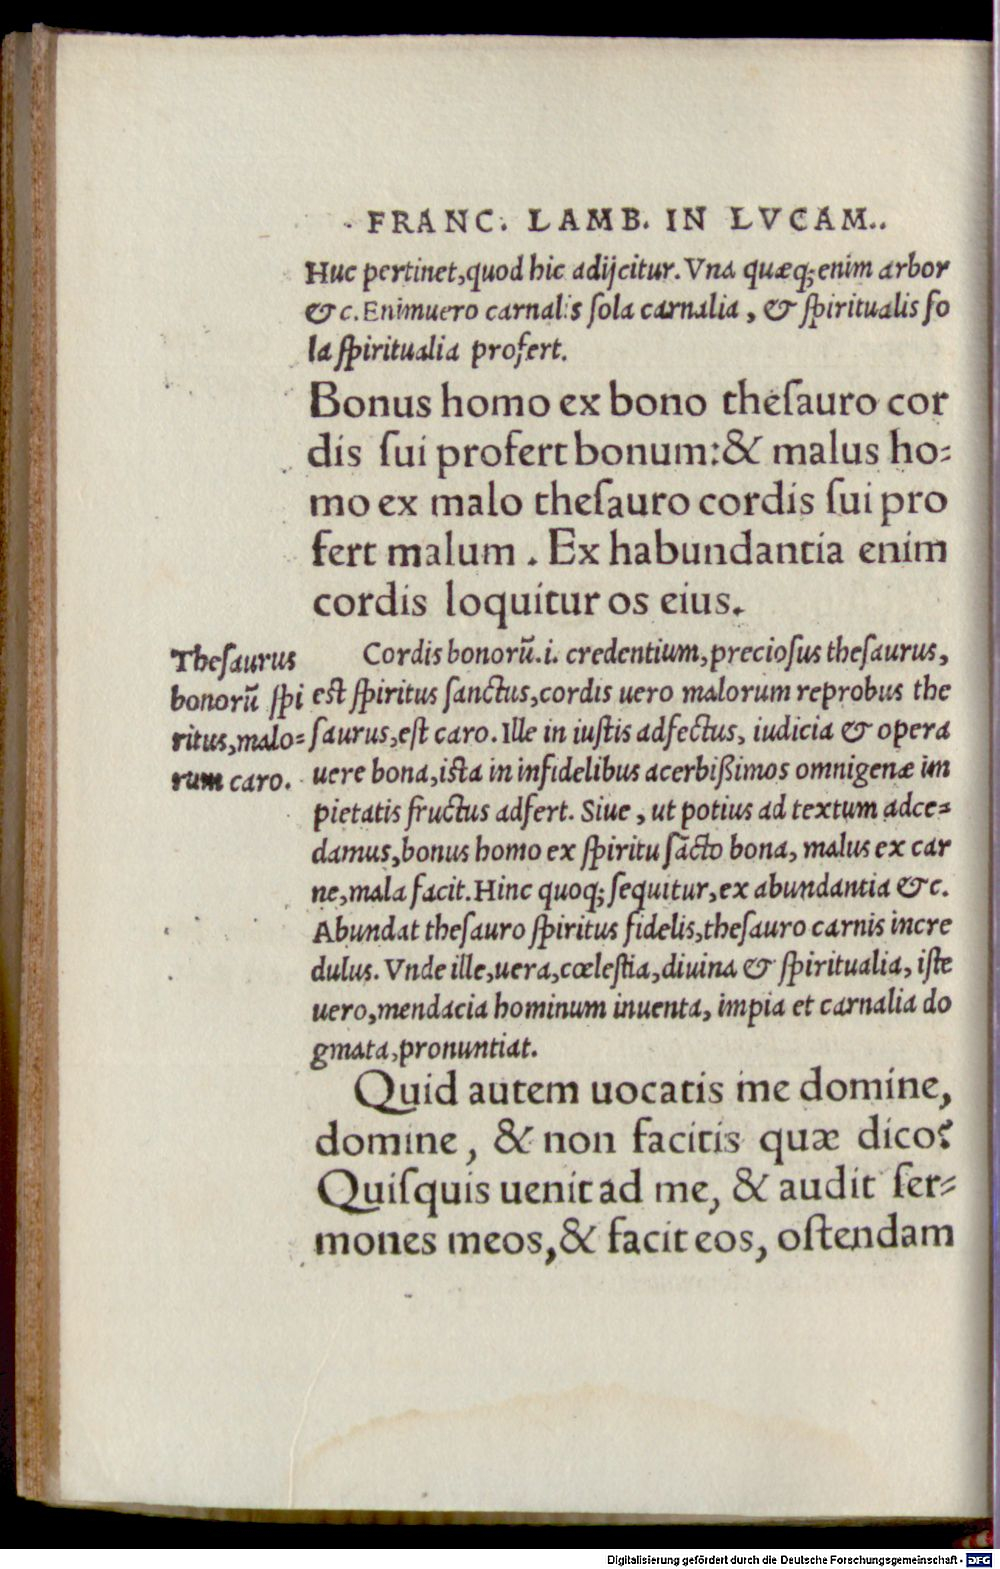 FRANC. LAMB. IN LVCAM..
Huc pertinet,quod hic adijcitur. Vna quæq;enim arbor
& c. Enimuero carnalis ſola carnalia , & ſpiritualis ſo
la ſpiritualia profert.
Bonus homo ex bono theſauro cor
dis ſui profert bonum:& malus ho⸗
mo ex malo theſauro cordis ſui pro
fert malum . Ex habundantia enim
cordis loquitur os eius.
Theſaurus
bonorũ ſpi
ritus,malo⸗
rum caro.
Cordis bonorũ.i. credentium,precioſus theſaurus,
est ſpiritus ſanctus,cordis uero malorum reprobus the
ſaurus,eſt caro. Ille in iuſtis adfectus, iudicia & opera
uere bona,ista in infidelibus acerbißimos omnigenæ im
pietatis fructus adfert. Siue , ut potius ad textum adce⸗
damus,bonus homo ex ſpiritu ſãcto bona, malus ex car
ne,mala facit. Hinc quoq; ſequitur,ex abundantia & c.
Abundat theſauro ſpiritus fidelis,theſauro carnis incre
dulus. Vnde ille,uera,cœleſtia,diuina & ſpiritualia, iſte
uero,mendacia hominum inuenta, impia et carnalia do
gmata,pronuntiat.
Quid autem uocatis me domine,
domine, & non facitis quæ dico?
Quiſquis uenit ad me, & audit ſer⸗
mones meos,& facit eos, oſtendam
Digitalisierung gefördert durch die Deutsche Forschungsgemeinschaft - DFG